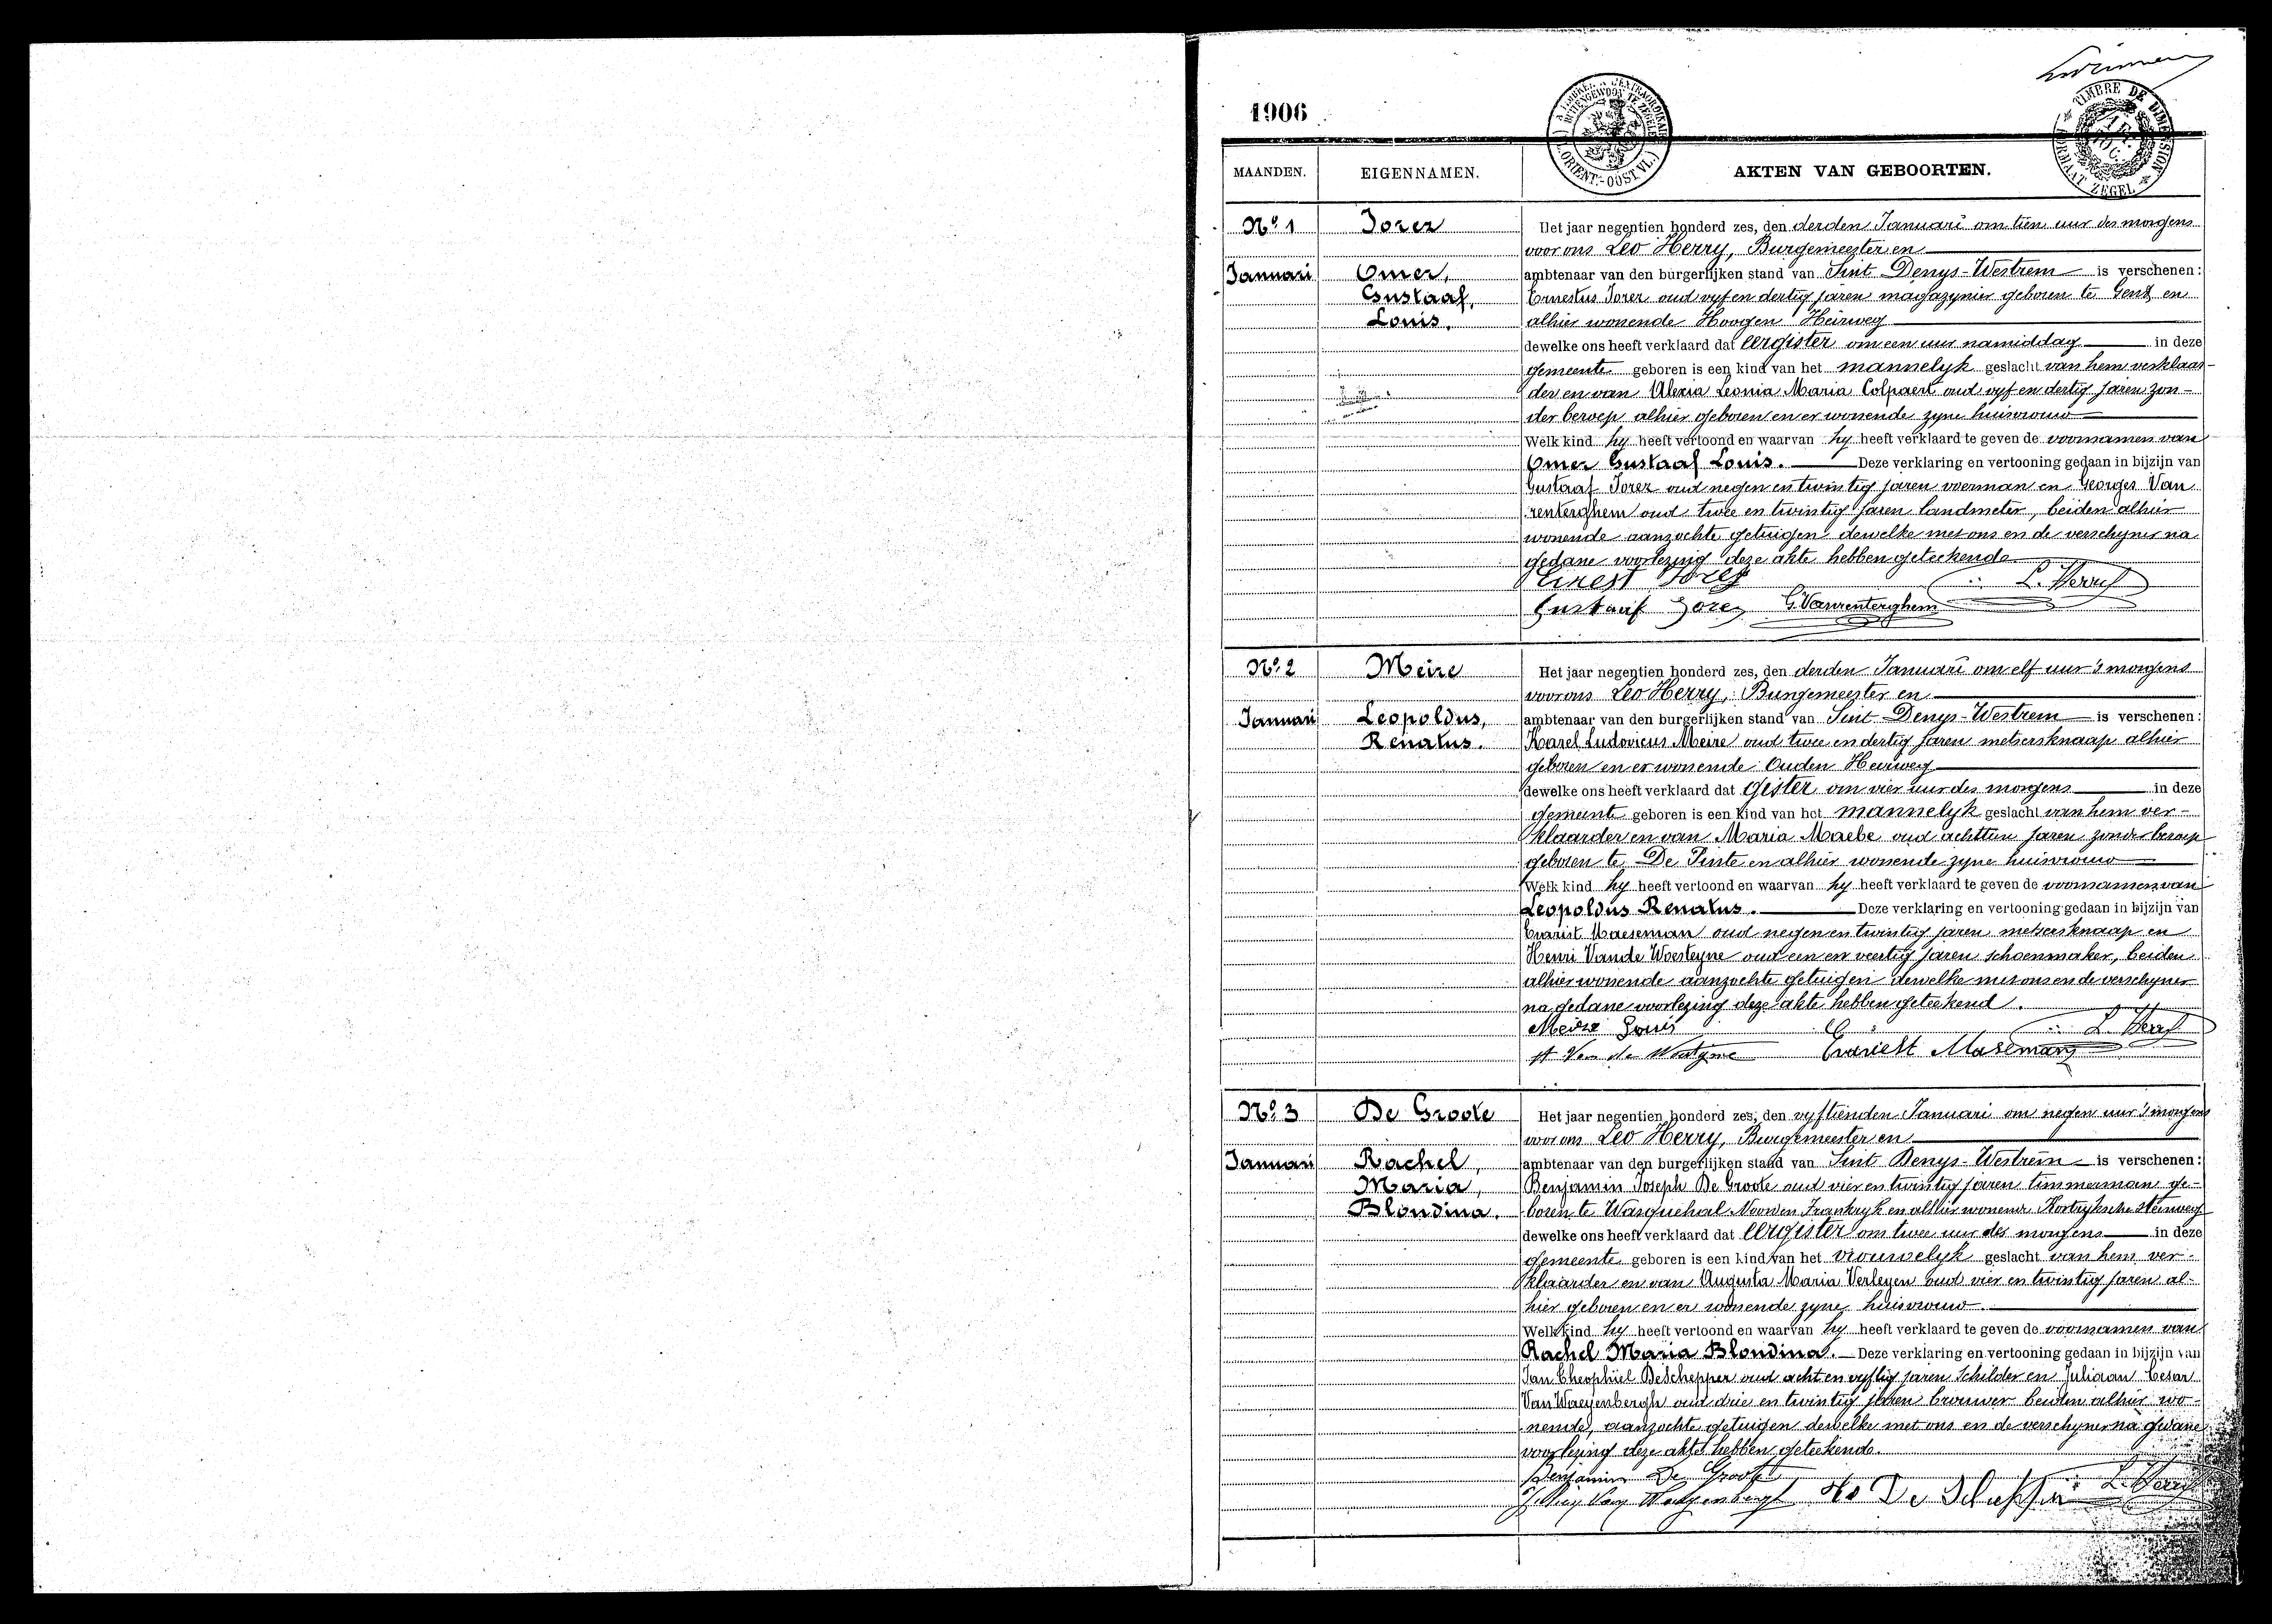 1906
MAANDEN. EIGENNAMEN. AKTEN VAN GEBOORTEN.
A TIMBRER A L'EXTRAORDINAIRE
BUITENGEWOON TE ZEGELEN
FL. ORIENT.-OOST VL.
TIMBRE DE DIMENSION
FORMAAT ZEGEL
No. 1 Jorez
Januari Omer,
Gustaaf,
Louis.
Het jaar negentien honderd zes, den derden Januari om tien uur des morgens
voor ons Leo Herry, Burgemeester en
ambtenaar van den burgerlijken stand van Sint Denys-Westrem is verschenen:
Ernestus Jorez oud vyf en dertig jaren magazynier geboren te Gent en
alhier wonende Hoogen Heirweg
dewelke ons heeft verklaard dat eergister om een uur namiddag in deze
gemeente geboren is een kind van het mannelyk geslacht van hem verklaar-
der en van Alexia Leonia Maria Colpaert oud vyf en dertig jaren zon-
der beroep alhier geboren en er wonende zyne huisvrouw
Welk kind hy heeft vertoond en waarvan hy heeft verklaard te geven de voornamen van
Omer Gustaaf Louis. Deze verklaring en vertooning gedaan in bijzijn van
Gustaaf Jorez oud negen en twintig jaren voerman en Georges Van
renterghem oud twee en twintig jaren landmeter, beiden alhier
wonende aanzochte getuigen dewelke met ons en de verschyner na
gedane voorlezing deze akte hebben geteekend
Ernest Jorez L. Herry
Gustaaf Jorez G. Vanrenterghem
No. 2 Meire
Januari Leopoldus,
Renatus.
Het jaar negentien honderd zes, den derden Januari om elf uur 's morgens
voor ons Leo Herry, Burgemeester en
ambtenaar van den burgerlijken stand van Sint Denys-Westrem is verschenen:
Karel Ludovicus Meire oud twee en dertig jaren metsersknaap alhier
geboren en er wonende Ouden Heirweg
dewelke ons heeft verklaard dat gister om vier uur des morgens in deze
gemeente geboren is een kind van het mannelyk geslacht van hem ver-
klaarder en van Maria Maebe oud achttien jaren zonder beroep
geboren te De Pinte en alhier wonende zyne huisvrouw
Welk kind hy heeft vertoond en waarvan hy heeft verklaard te geven de voornamen van
Leopoldus Renatus. Deze verklaring en vertooning gedaan in bijzijn van
Evarist Maeseman oud negen en twintig jaren metsersknaap en
Henri Vande Woesteyne oud een en veertig jaren schoenmaker, beiden
alhier wonende aanzochte getuigen dewelke met ons en de verschyner
na gedane voorlezing deze akte hebben geteekend.
Meire Louis L. Herry
H Van de Woestyne Evariest Maseman
No. 3 De Groote
Januari Rachel,
Maria,
Blondina.
Het jaar negentien honderd zes, den vyftienden Januari om negen uur 's morgens
voor ons Leo Herry, Burgemeester en
ambtenaar van den burgerlijken stand van Sint Denys-Westrem is verschenen:
Benjamin Joseph De Groote oud vier en twintig jaren timmerman ge-
boren te Wasquehal Noorden Frankryk en alhier wonende Kortryksche steenweg
dewelke ons heeft verklaard dat eergister om twee uur des morgens in deze
gemeente geboren is een kind van het vrouwelyk geslacht van hem ver-
klaarder en van Augusta Maria Verleyen oud vier en twintig jaren al-
hier geboren en er wonende zyne huisvrouw.
Welk kind hy heeft vertoond en waarvan hy heeft verklaard te geven de voornamen van
Rachel Maria Blondina. Deze verklaring en vertooning gedaan in bijzijn van
Jan Theophiel De Schepper oud acht en vyftig jaren Schilder en Juliaan Cesar
Van Waeyenbergh oud drie en twintig jaren brouwer beiden alhier wo-
nende, aanzochte getuigen dewelke met ons en de verschyner na gedane
voorlezing deze akte hebben geteekend.
Benjamin De Groote
Van Waeyenbergh De Schepper L. Herry